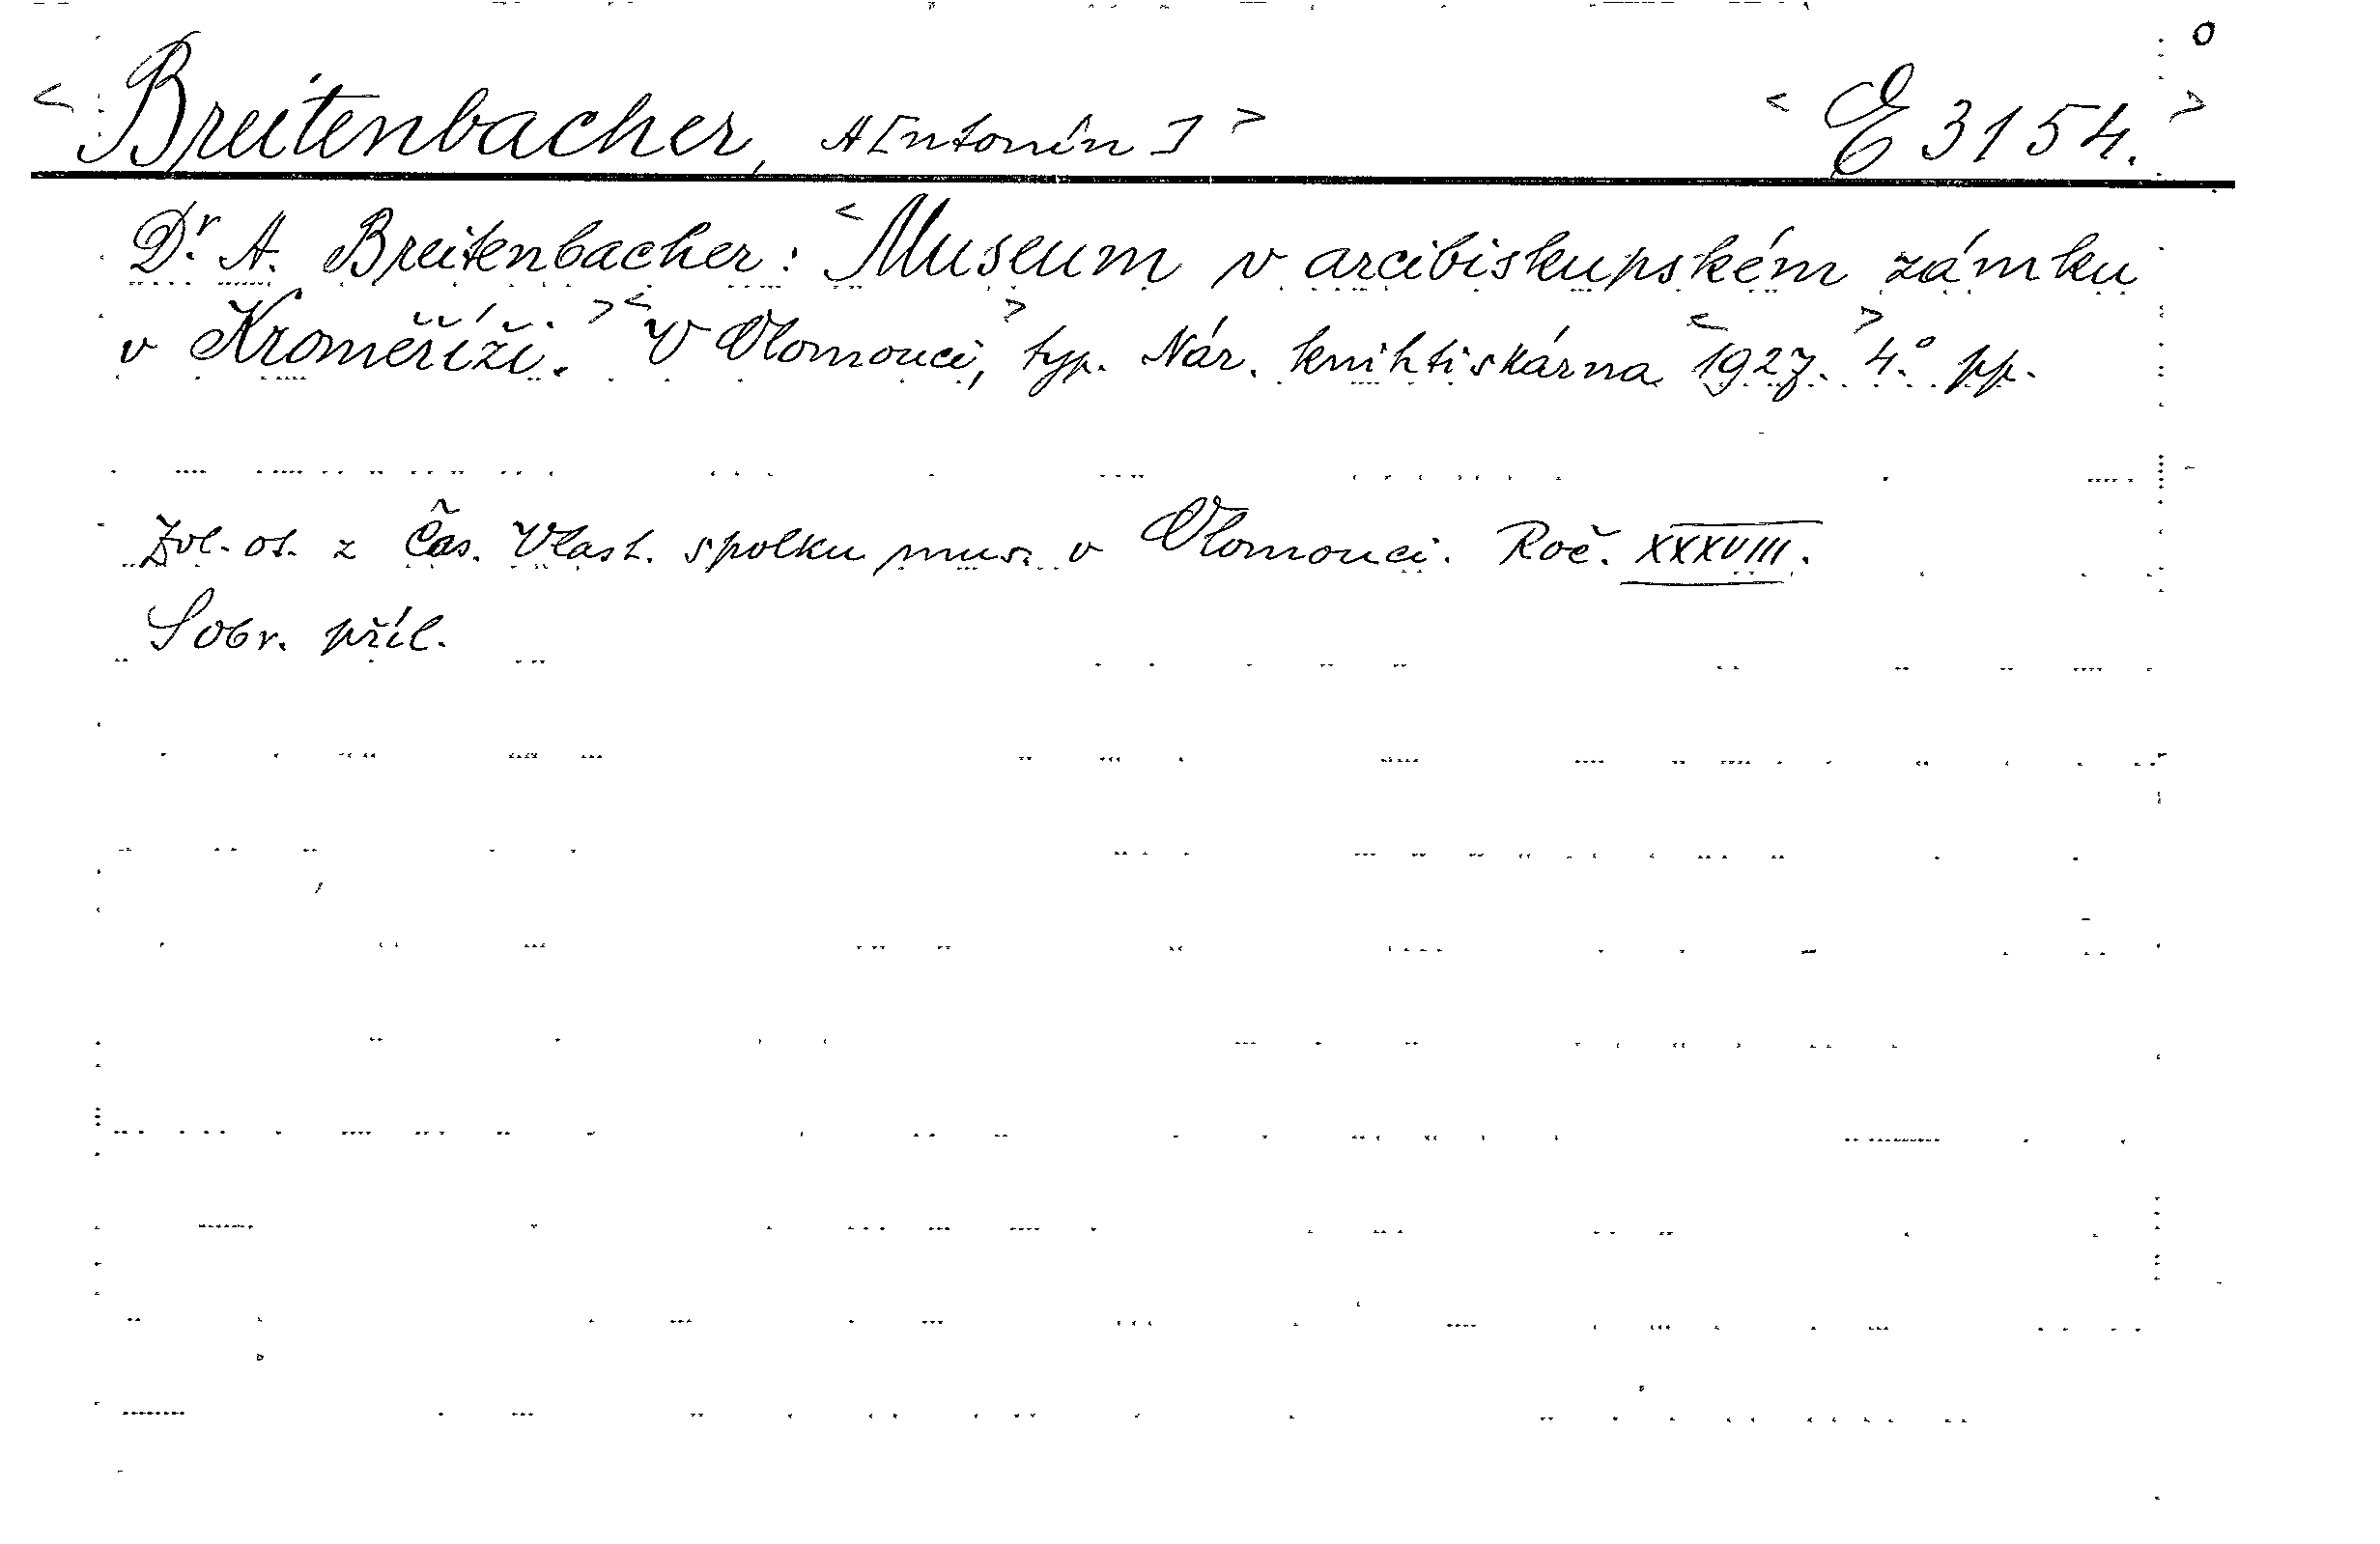 o
< Breitenbacher, A[ntonín] > < E 3154. >
Dr. A. Breitenbacher: < Museum v arcibiskupském zámku
v Kroměříži. > < V Olomouci, > typ. Nár. knihtiskárna < 1927. > 4.° pp.
Zvl. ot. z Čas. Vlast. spolku mus. v Olomouci. Roč. XXXVIII.
S obr. příl.